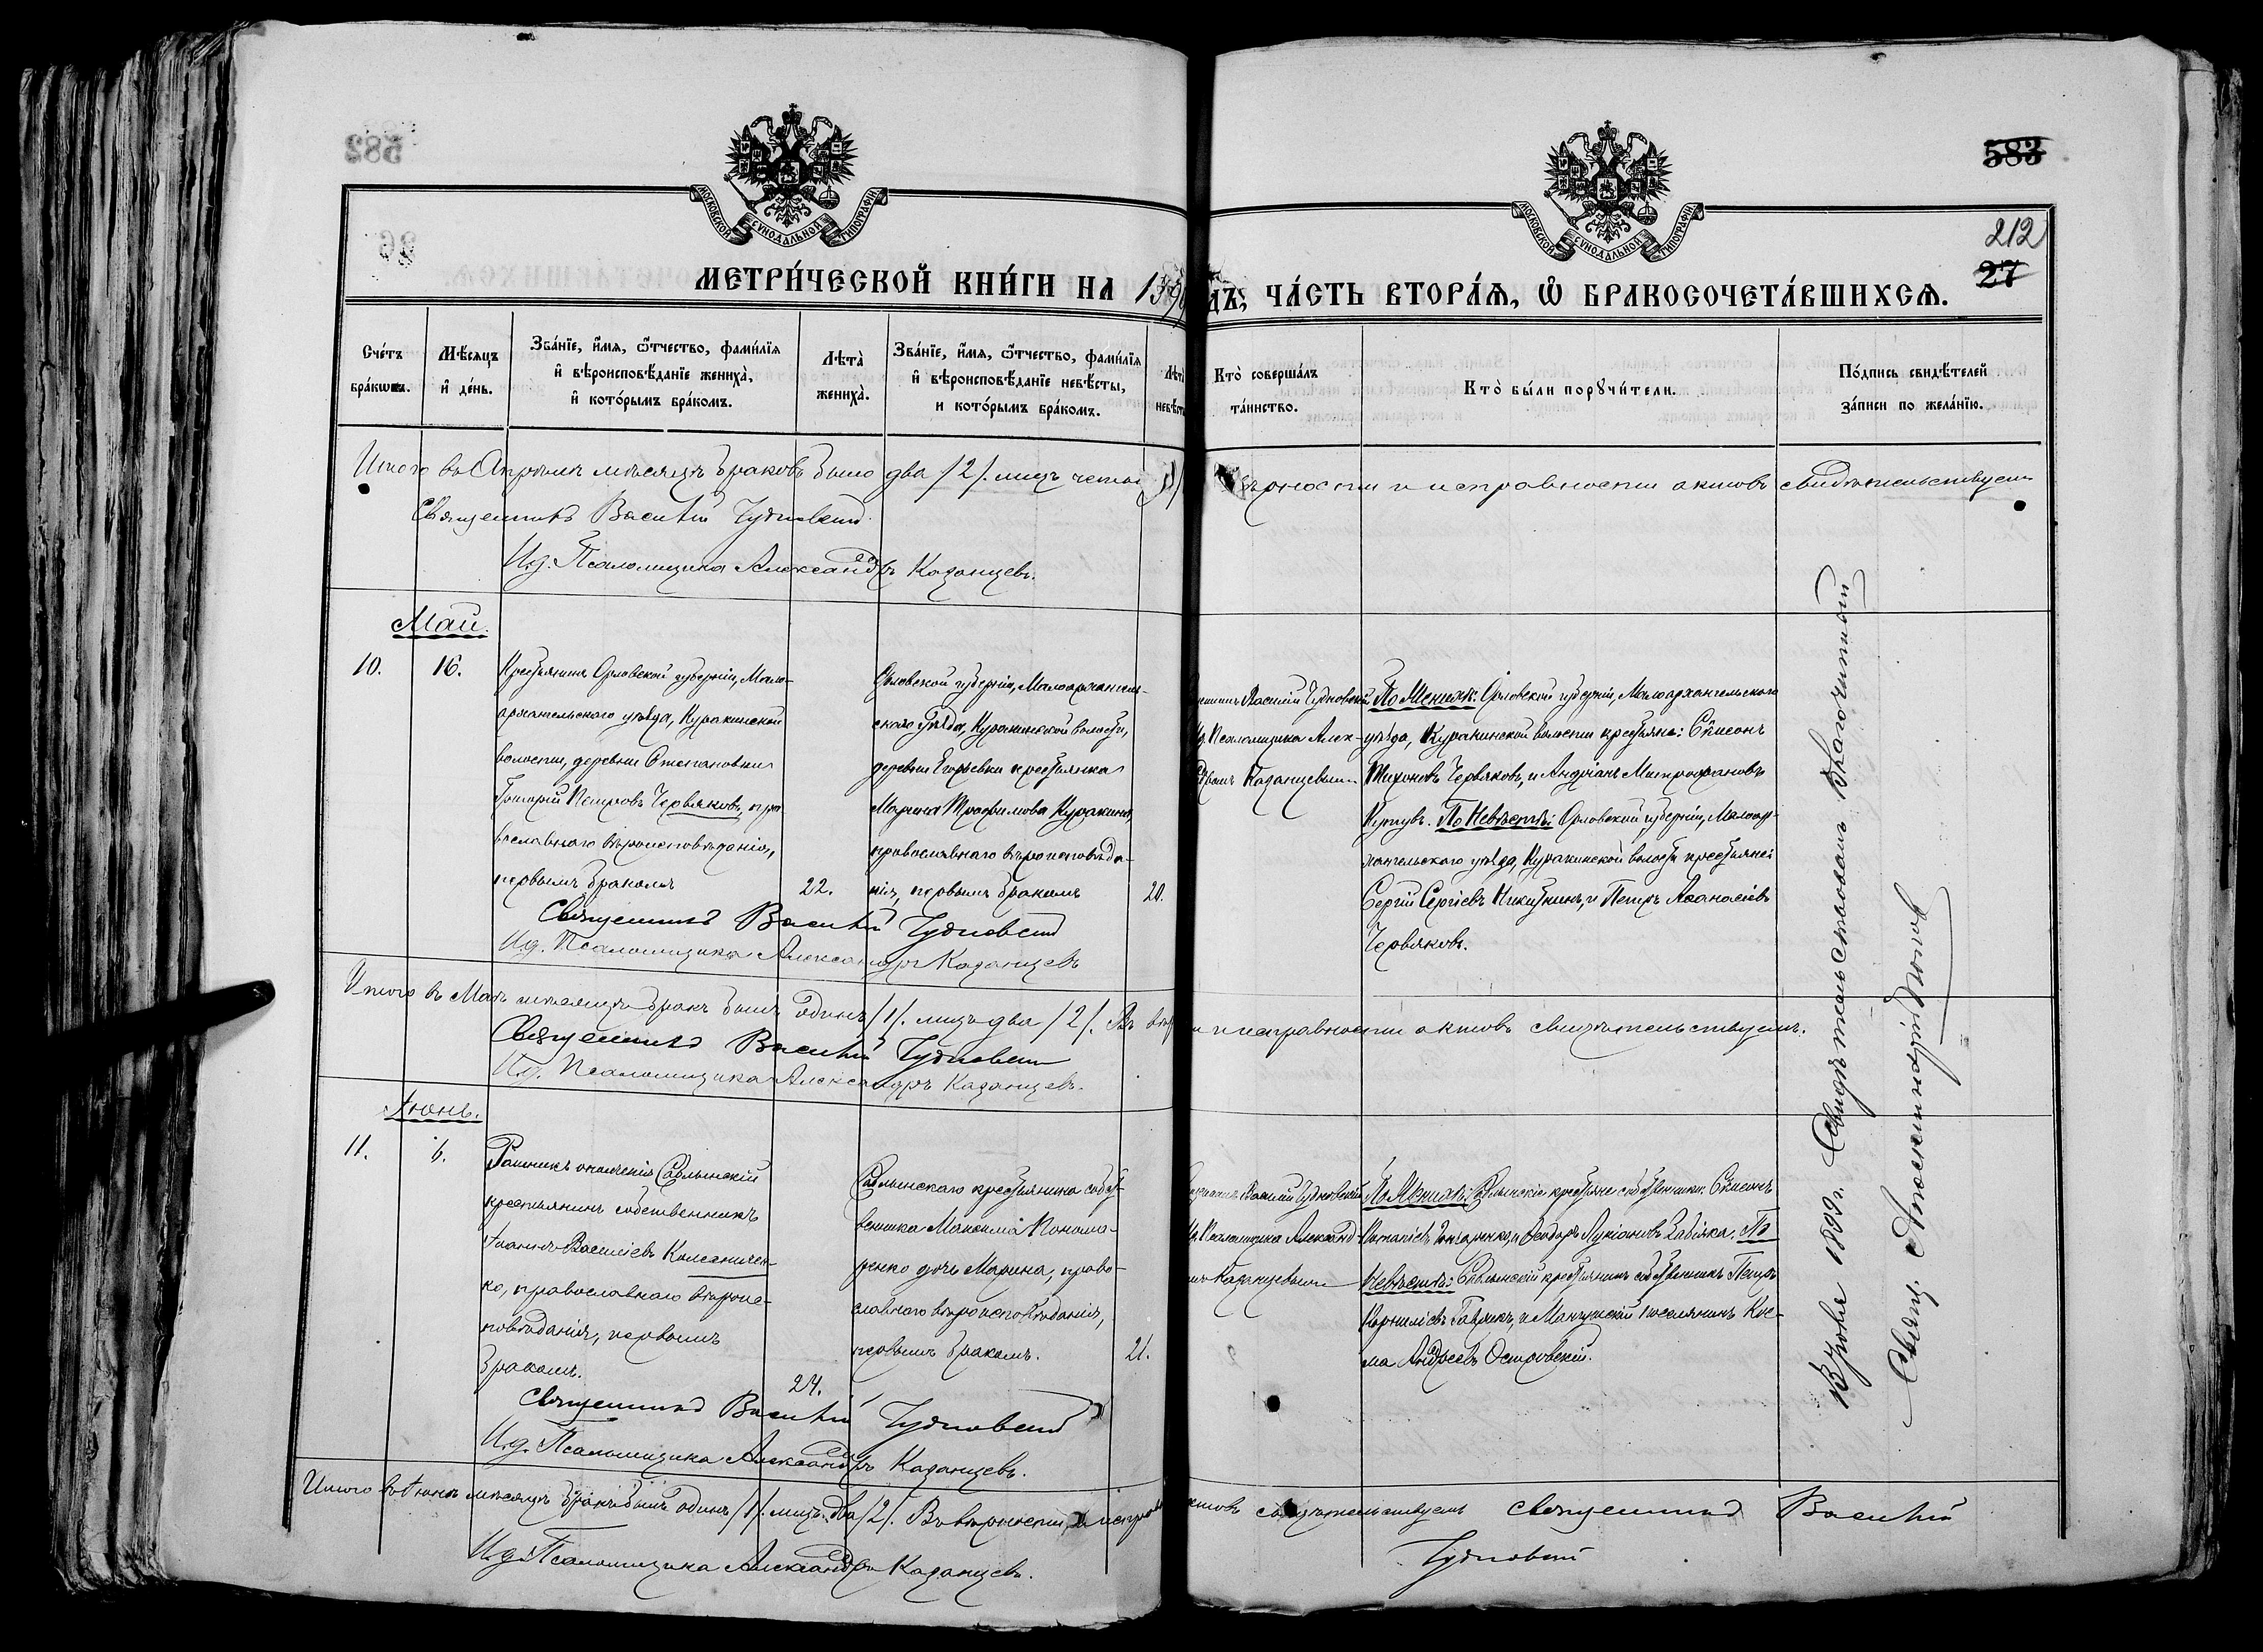 582
583
212
27
МОСКОВСКОЙ СѴНОДАЛЬНОЙ ТИПОГРАФІИ
МОСКОВСКОЙ СѴНОДАЛЬНОЙ ТИПОГРАФІИ
МЕТРИ́ЧЕСКОЙ КНИ́ГИ НА 189
ДЪ, ЧА́СТЬ ВТОРА́Я, Ѡ҆ БРАКОСОЧЕТА́ВШИХСЯ.
Сче́тъ бра́кѡвъ.
Мѣ́сяцъ и҆ де́нь.
Зва́нїе, и҆́мя, ѻ҆́тчество, фами́лїя и҆ вѣроисповѣ́данїе жениха̀, и҆ кото́рымъ бра́комъ.
Лѣта̀ жениха̀.
Зва́нїе, и҆́мя, ѻ҆́тчество, фами́лїя и҆ вѣроисповѣ́данїе невѣ́сты, и кото́рымъ бра́комъ.
Лѣта̀ невѣ́ст
Кто̀ соверша́лъ та́инство.
Кто̀ бы́ли порꙋчи́тели.
По́дпись свидѣ́телей за́писи по жела́нїю.
Итого въ Апрѣлѣ мѣсяцѣ браковъ было два /2/. лицъ четы
вѣрности и исправности актовъ свидѣтельствуемъ
Священникъ Василій Чудновскій.
И.д. Псаломщика Александръ Казанцевъ.
Май.
10.
16.
Крестьянинъ Орловской губерніи, Мало-
архангельскаго уѣзда, Куракинской
волости, деревни Степановки
Григорій Петровъ Червяковъ, пра
вославнаго вѣроисповѣданія,
первымъ бракомъ
22.
Орловской губерніи, Малоархангель-
скаго уѣзда, Куракинской волости,
деревни Егорьевки крестьянка
Марина Трофимова Куракина,
православнаго вѣроисповѣда-
нія, первымъ бракомъ
20.
Василій Чудновскій
И.д. Псаломщика Алек-
Казанцевымъ
По Женихѣ: Орловской губерніи, Малоархангельскаго
уѣзда, Куракинской волости крестьяне: Сѵмеонъ
Тихоновъ Червяковъ, и Андріанъ Митрофановъ
По Невѣстѣ: Орловской губерніи, Малоар-
хангельскаго уѣзда, Куракинской волости крестьяне:
Сергій Сергіевъ Никишкинъ, и Петръ Аѳанасіевъ
Червяковъ.
Священникъ Василій Чудновскій
И.д. Псаломщика Александръ Казанцевъ
Итого въ Маѣ мѣсяцѣ бракъ былъ одинъ /1/. лицъ два /2/. Въ вѣр
и исправности актовъ свидѣтельствуемъ.
Священникъ Василій Чудновскій
И.д. Псаломщика Александръ Казанцевъ.
Іюнь.
11.
6.
Ратникъ ополченія
крестьянинъ собственникъ
Іоаннъ Василіевъ Колесничен-
ко, православнаго вѣроис-
повѣданія, первымъ
бракомъ.
24.
крестьянина собст-
венника Максима Понома-
ренко дочь Марина, право-
славнаго вѣроисповѣданія,
первымъ бракомъ.
21.
Василій Чудновскій
И.д. Псаломщика Александ-
Казанцевымъ
По Женихѣ: крестьяне собственники: Сѵмеонъ
Гончаренко, и Ѳеодоръ Лукіановъ Забіяка. По
Невѣстѣ: крестьянинъ собственникъ Петръ
Корниліевъ и поселянинъ Кос-
ма Андреевъ Островскій.
Священникъ Василій Чудновскій
И.д. Псаломщика Александръ Казанцевъ.
Итого въ Іюнѣ мѣсяцѣ бракъ былъ одинъ /1/. лицъ два /2/. Въ вѣрности и исправно
актовъ свидѣтельствуемъ Священникъ Василій
Чудновскій
И.д. Псаломщика Александръ Казанцевъ.
1899 г. Свидѣтельствовалъ Благочинный
Свящ. Попов